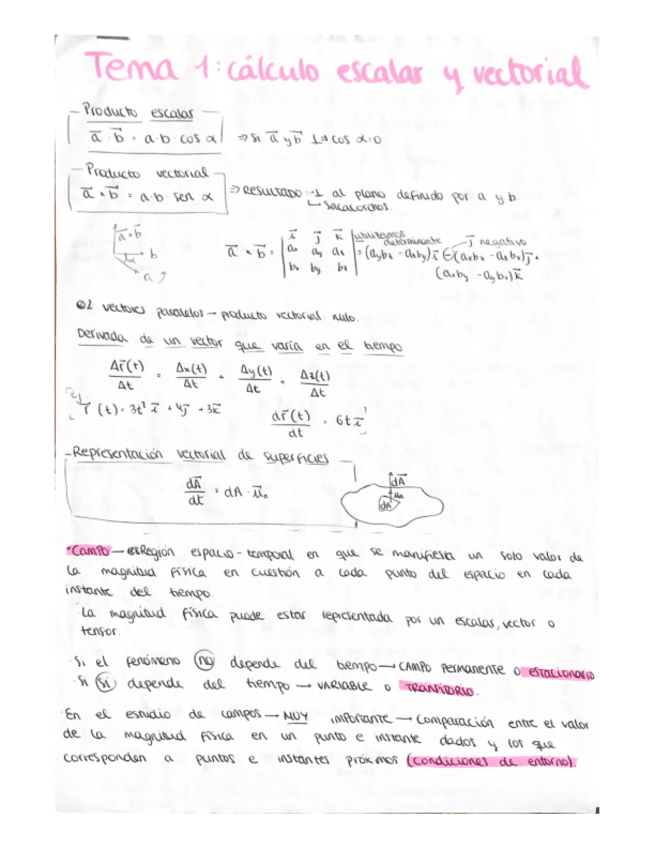 Tema 1: cálculo escalar y vectorial
Producto escalar
a⃗ · b⃗ = a·b cos α ⇒ si a⃗ y b⃗ ⊥ → cos α = 0
Producto vectorial
a⃗ × b⃗ = a·b sen α ⇒ Resultado → ⊥ al plano definido por a y b.
↳ Sacacorchos.
a⃗ × b⃗
b
α
a
utilizamos determinante
j negativo
a⃗ × b⃗ = | i⃗ j⃗ k⃗ | ax ay az | bx by bz | = (ay bz - az by) i⃗ ⊖ (ax bz - az bx) j⃗ +
(ax by - ay bx) k⃗
2 vectores paralelos → producto vectorial nulo.
Derivada de un vector que varía en el tiempo
Δr⃗(t)/Δt = Δx(t)/Δt + Δy(t)/Δt + Δz(t)/Δt
ej.
r⃗(t) = 3t² i⃗ + 4j⃗ + 3k⃗
dr⃗(t)/dt = 6t i⃗
- Representación vectorial de superficies
dA⃗/dt = dA · u⃗n
dA⃗
un
dA
· Campo → Región espacio-temporal en que se manifiesta un solo valor de
la magnitud física en cuestión a cada punto del espacio en cada
instante del tiempo.
· La magnitud física puede estar representada por un escalar, vector o
tensor.
· Si el fenómeno no depende del tiempo → CAMPO PERMANENTE o ESTACIONARIO
· Si sí depende del tiempo → VARIABLE o TRANSITORIO.
· En el estudio de campos → MUY importante → Comparación entre el valor
de la magnitud física en un punto e instante dados y los que
corresponden a puntos e instantes próximos (condiciones de entorno).